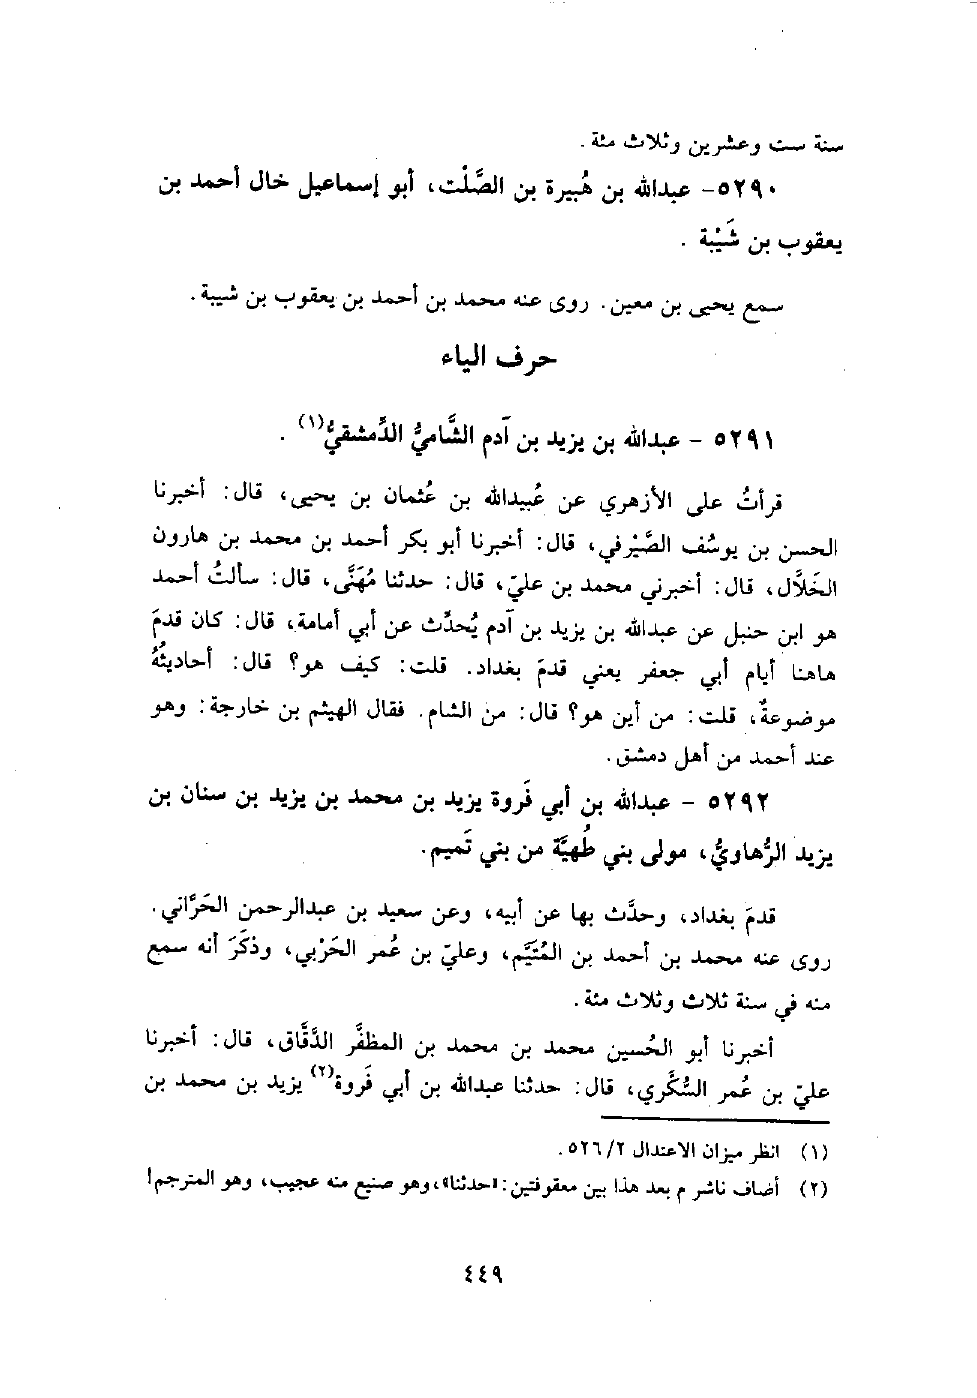 سنة ست وعشرين وثلاث مئة .
٥٢٩٠- عبدالله بن هُبيرة بن الصَّلْت، أبو إسماعيل خال أحمد بن
يعقوب بن شَيْبة .
سمع يحيى بن معين. روى عنه محمد بن أحمد بن يعقوب بن شيبة.
حرف الياء
٥٢٩١ - عبدالله بن يزيد بن آدم الشَّاميُّ الدِّمشقيُّ(١) .
قرأتُ على الأزهري عن عُبيدالله بن عُثمان بن يحيى، قال: أخبرنا
الحسن بن يوسُف الصَّيْرفي، قال: أخبرنا أبو بكر أحمد بن محمد بن هارون
الخَلَّال، قال: أخبرني محمد بن عليّ، قال: حدثنا مُهَنَّى، قال: سألتُ أحمد
هو ابن حنبل عن عبدالله بن يزيد بن آدم يُحدِّث عن أبي أمامة، قال: كان قدمَ
هاهنا أيام أبي جعفر يعني قدمَ بغداد. قلت: كيف هو؟ قال: أحاديثُهُ
موضوعةٌ، قلت: من أين هو؟ قال: من الشام. فقال الهيثم بن خارجة: وهو
عند أحمد من أهل دمشق.
٥٢٩٢ - عبدالله بن أبي فَروة يزيد بن محمد بن يزيد بن سنان بن
يزيد الرُّهاويُّ، مولى بني طُهيَّة من بني تَميم.
قدمَ بغداد، وحدَّث بها عن أبيه، وعن سعيد بن عبدالرحمن الحَرَّاني.
روى عنه محمد بن أحمد بن المُتَيَّم، وعليّ بن عُمر الحَرْبي، وذكَرَ أنه سمع
منه في سنة ثلاث وثلاث مئة.
أخبرنا أبو الحُسين محمد بن محمد بن المظفَّر الدَّقَّاق، قال: أخبرنا
عليّ بن عُمر السُّكَّري، قال: حدثنا عبدالله بن أبي فَروة(٢) يزيد بن محمد بن
(١) انظر ميزان الاعتدال ٢/ ٥٢٦.
(٢) أضاف ناشر م بعد هذا بين معقوفتين: «حدثنا»، وهو صنيع منه عجيب، وهو المترجم!
٤٤٩